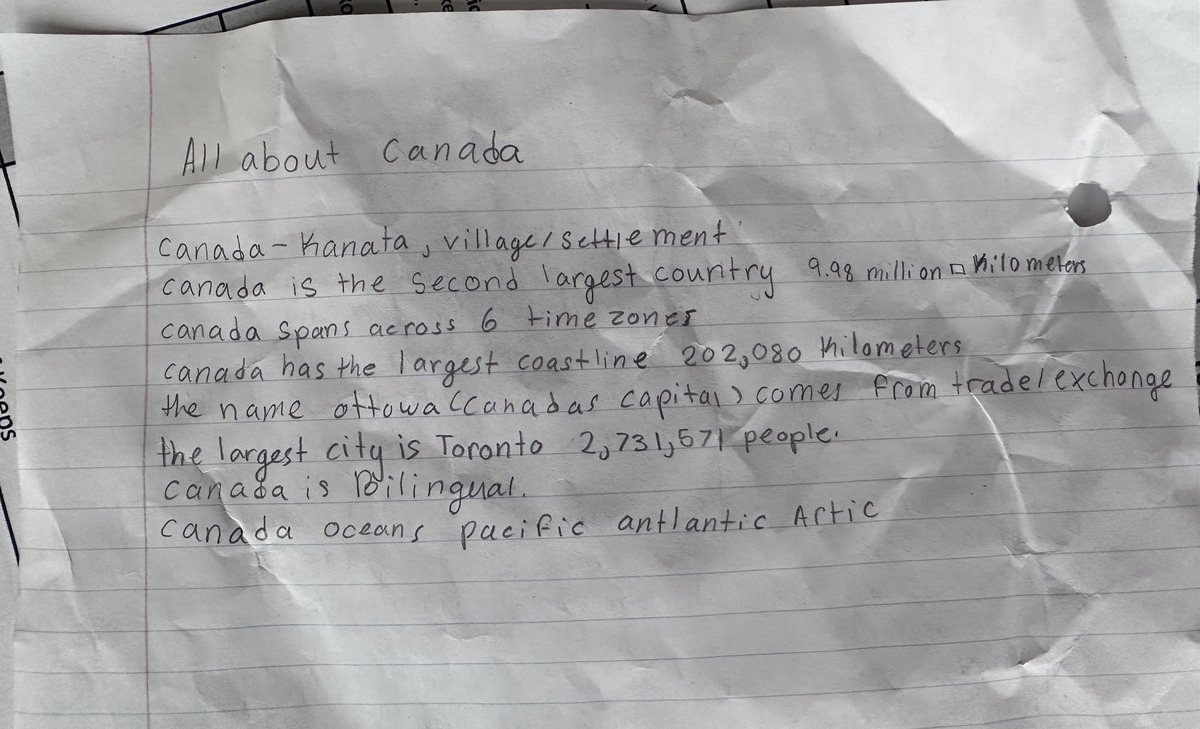 All about Canada
Canada - Kanata, village/settlement
Canada is the second largest country 9.98 million □ Kilometers
Canada spans across 6 time zones
Canada has the largest coastline 202,080 Kilometers
the name ottowa (Canadas capital) comes from trade/exchange
the largest city is Toronto 2,731,571 people.
Canada is Bilingual.
Canada oceans pacific antlantic Artic